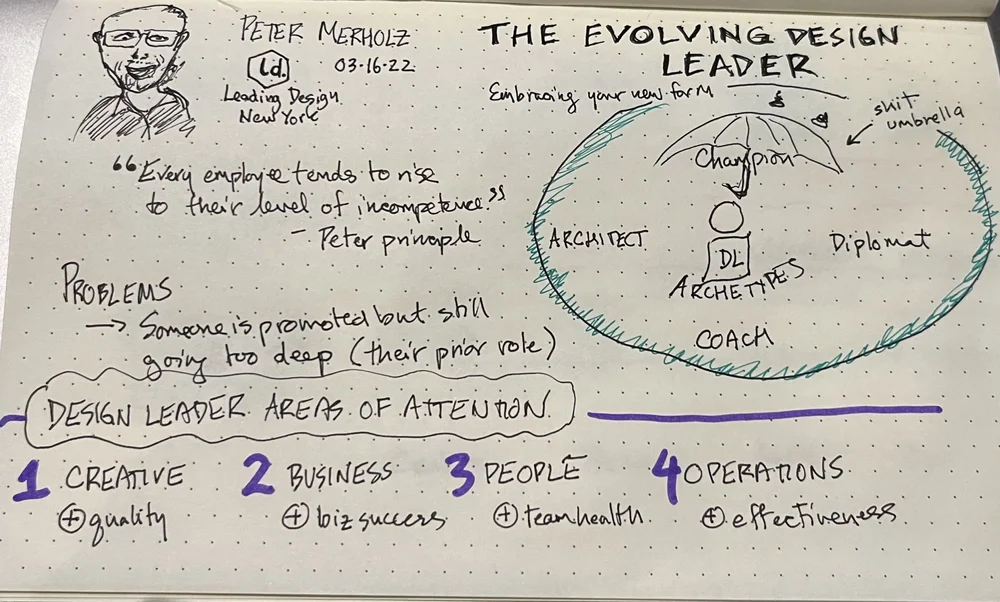 PETER MERHOLZ
Ld.
03-16-22
Leading Design
New York
THE EVOLVING DESIGN
LEADER
Embracing your new form
shit
umbrella
Champion
ARCHITECT
Diplomat
DL
ARCHETYPES
COACH
“Every employee tends to rise
to their level of incompetence.”
- Peter principle
PROBLEMS
→ Someone is promoted but still
going too deep (their prior role)
DESIGN LEADER AREAS OF ATTENTION
1 CREATIVE
⊕ quality
2 BUSINESS
⊕ biz success
3 PEOPLE
⊕ team health
4 OPERATIONS
⊕ effectiveness